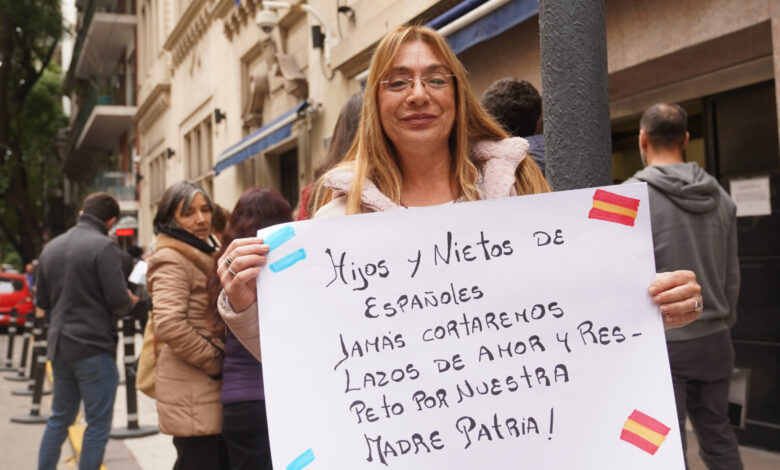 Hijos y Nietos de
Españoles
Jamás cortaremos
Lazos de amor y Res-
peto por Nuestra
Madre Patria!